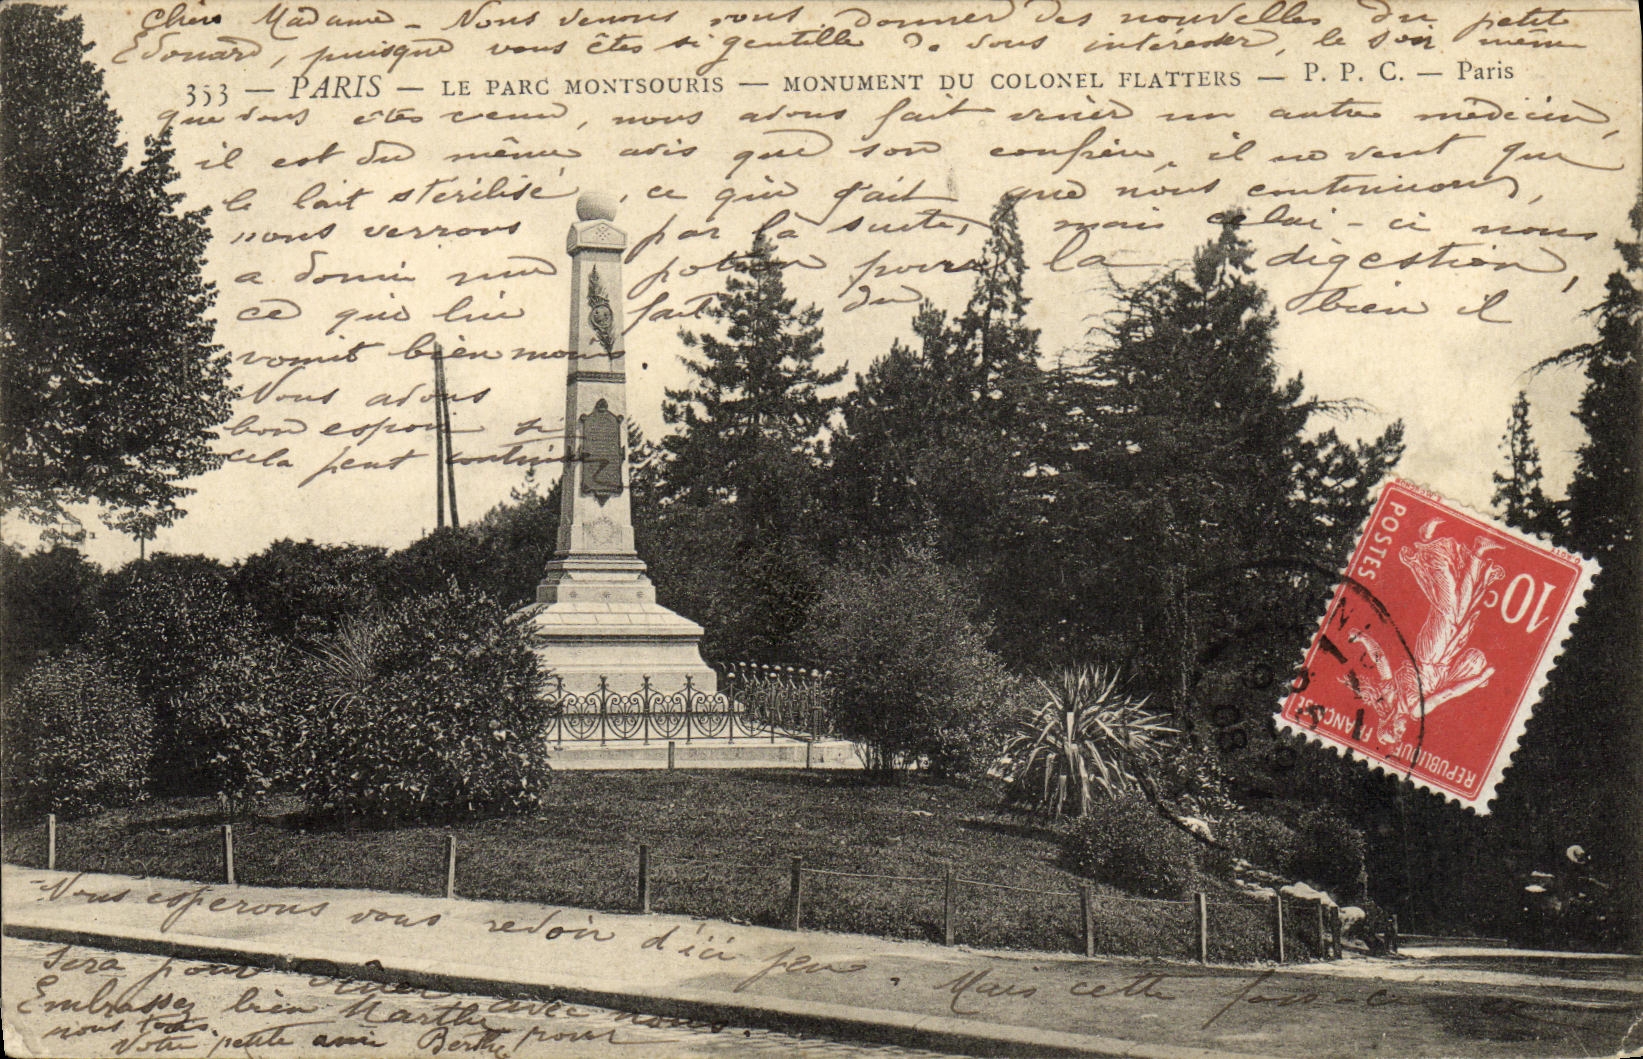 Chère Madame - Nous venons vous donner des nouvelles du petit
Edouard, puisque vous êtes si gentille de vous intéresser, le soir même
353 — PARIS — LE PARC MONTSOURIS — MONUMENT DU COLONEL FLATTERS — P. P. C. — Paris
que vous êtes venue, nous avons fait venir un autre médecin,
il est du même avis que son confrère, il ne veut que
le lait stérilisé, ce qui fait que nous continuons,
nous verrons par la suite, mais celui-ci nous
a donné une potion pour la digestion,
ce qui lui fait du bien il
vomit bien moins.
Nous avons
bon espoir si
cela peut continuer
POSTES
10c
REPUBLIQUE FRANÇAISE
08
Nous esperons vous revoir d'ici peu. Mais cette fois-ci ce
sera pour dîner avec nous.
Embrassez bien Marthe pour
nous tous.
Votre petite amie Berthe